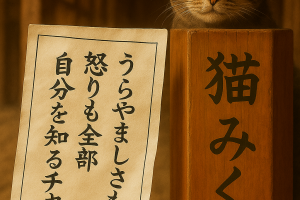 うらやましさも
怒りも全部
自分を知るチャ
猫みく